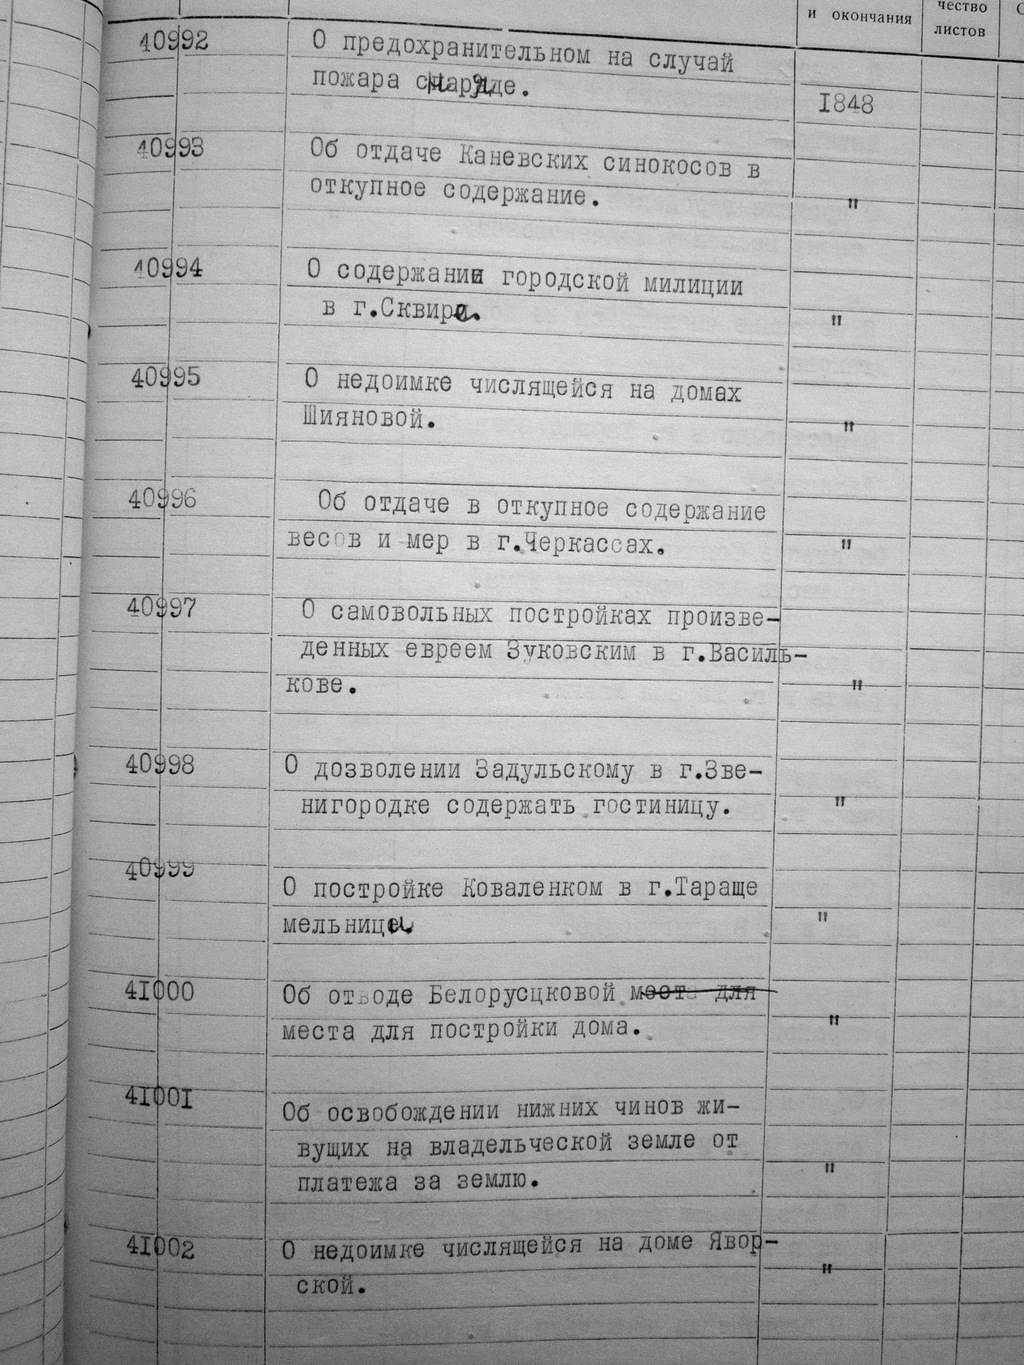 и окончания
чество
листов
С
40992
О предохранительном на случай
пожара снаряде.
1848
40993
Об отдаче Каневских синокосов в
откупное содержание.
"
40994
О содержании городской милиции
в г.Сквире.
"
40995
О недоимке числящейся на домах
Шияновой.
"
40996
Об отдаче в откупное содержание
весов и мер в г.Черкассах.
"
40997
О самовольных постройках произве-
денных евреем Зуковским в г.Василь-
кове.
"
40998
О дозволении Задульскому в г.Зве-
нигородке содержать гостиницу.
"
40999
О постройке Коваленком в г.Тараще
мельницы
"
41000
Об отводе Белорусцковой места для
места для постройки дома.
"
41001
Об освобождении нижних чинов жи-
вущих на владельческой земле от
платежа за землю.
"
41002
О недоимке числящейся на доме Явор-
ской.
"